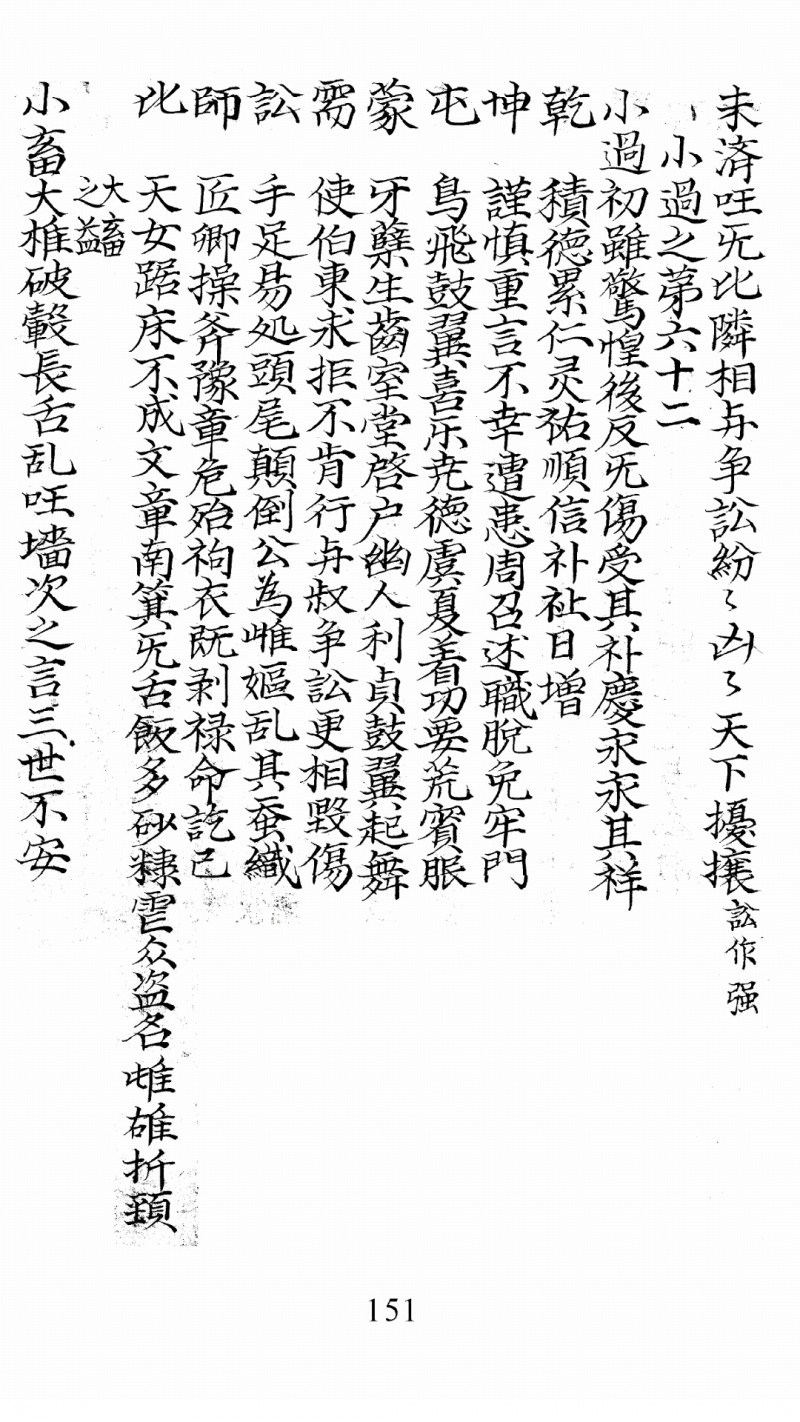 未済 吐旡比隣相与争訟紛〻凶〻天下擾攘 訟作强
小過之苐六十二
小過 初雖驚惶後反旡傷受其補慶永永其祥
乾 積德累仁灵祐順信补祉日增
坤 謹慎重言不幸遭患周召述職脫免牢門
屯 鳥飛鼓翼喜乐尭德虞夏着功要荒賓服
蒙 牙蘖生齒室堂啓户幽人利貞鼓翼起舞
需 使伯東求拒不肯行与叔争訟更相毀傷
訟 手足易処頭尾顛倒公為雌嫗乱其蚕織
師 匠卿操斧豫章危殆袀衣既剥禄命訖已
比 天女踞床不成文章南箕旡舌飯多砂糠虐众盗名雌雄折頸
大畜之益
小畜 大椎破轂長舌乱吐墻次之言三世不安
151